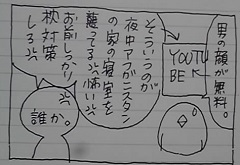 男の顔が無料。
YOUTU
BE
そういうのが
夜中アフガニスタン
の家の寝室を
襲ってる💢怖い💢
お前しっかり💢
枕対策
しろ💢
誰か。